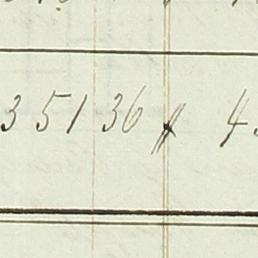 35136 4